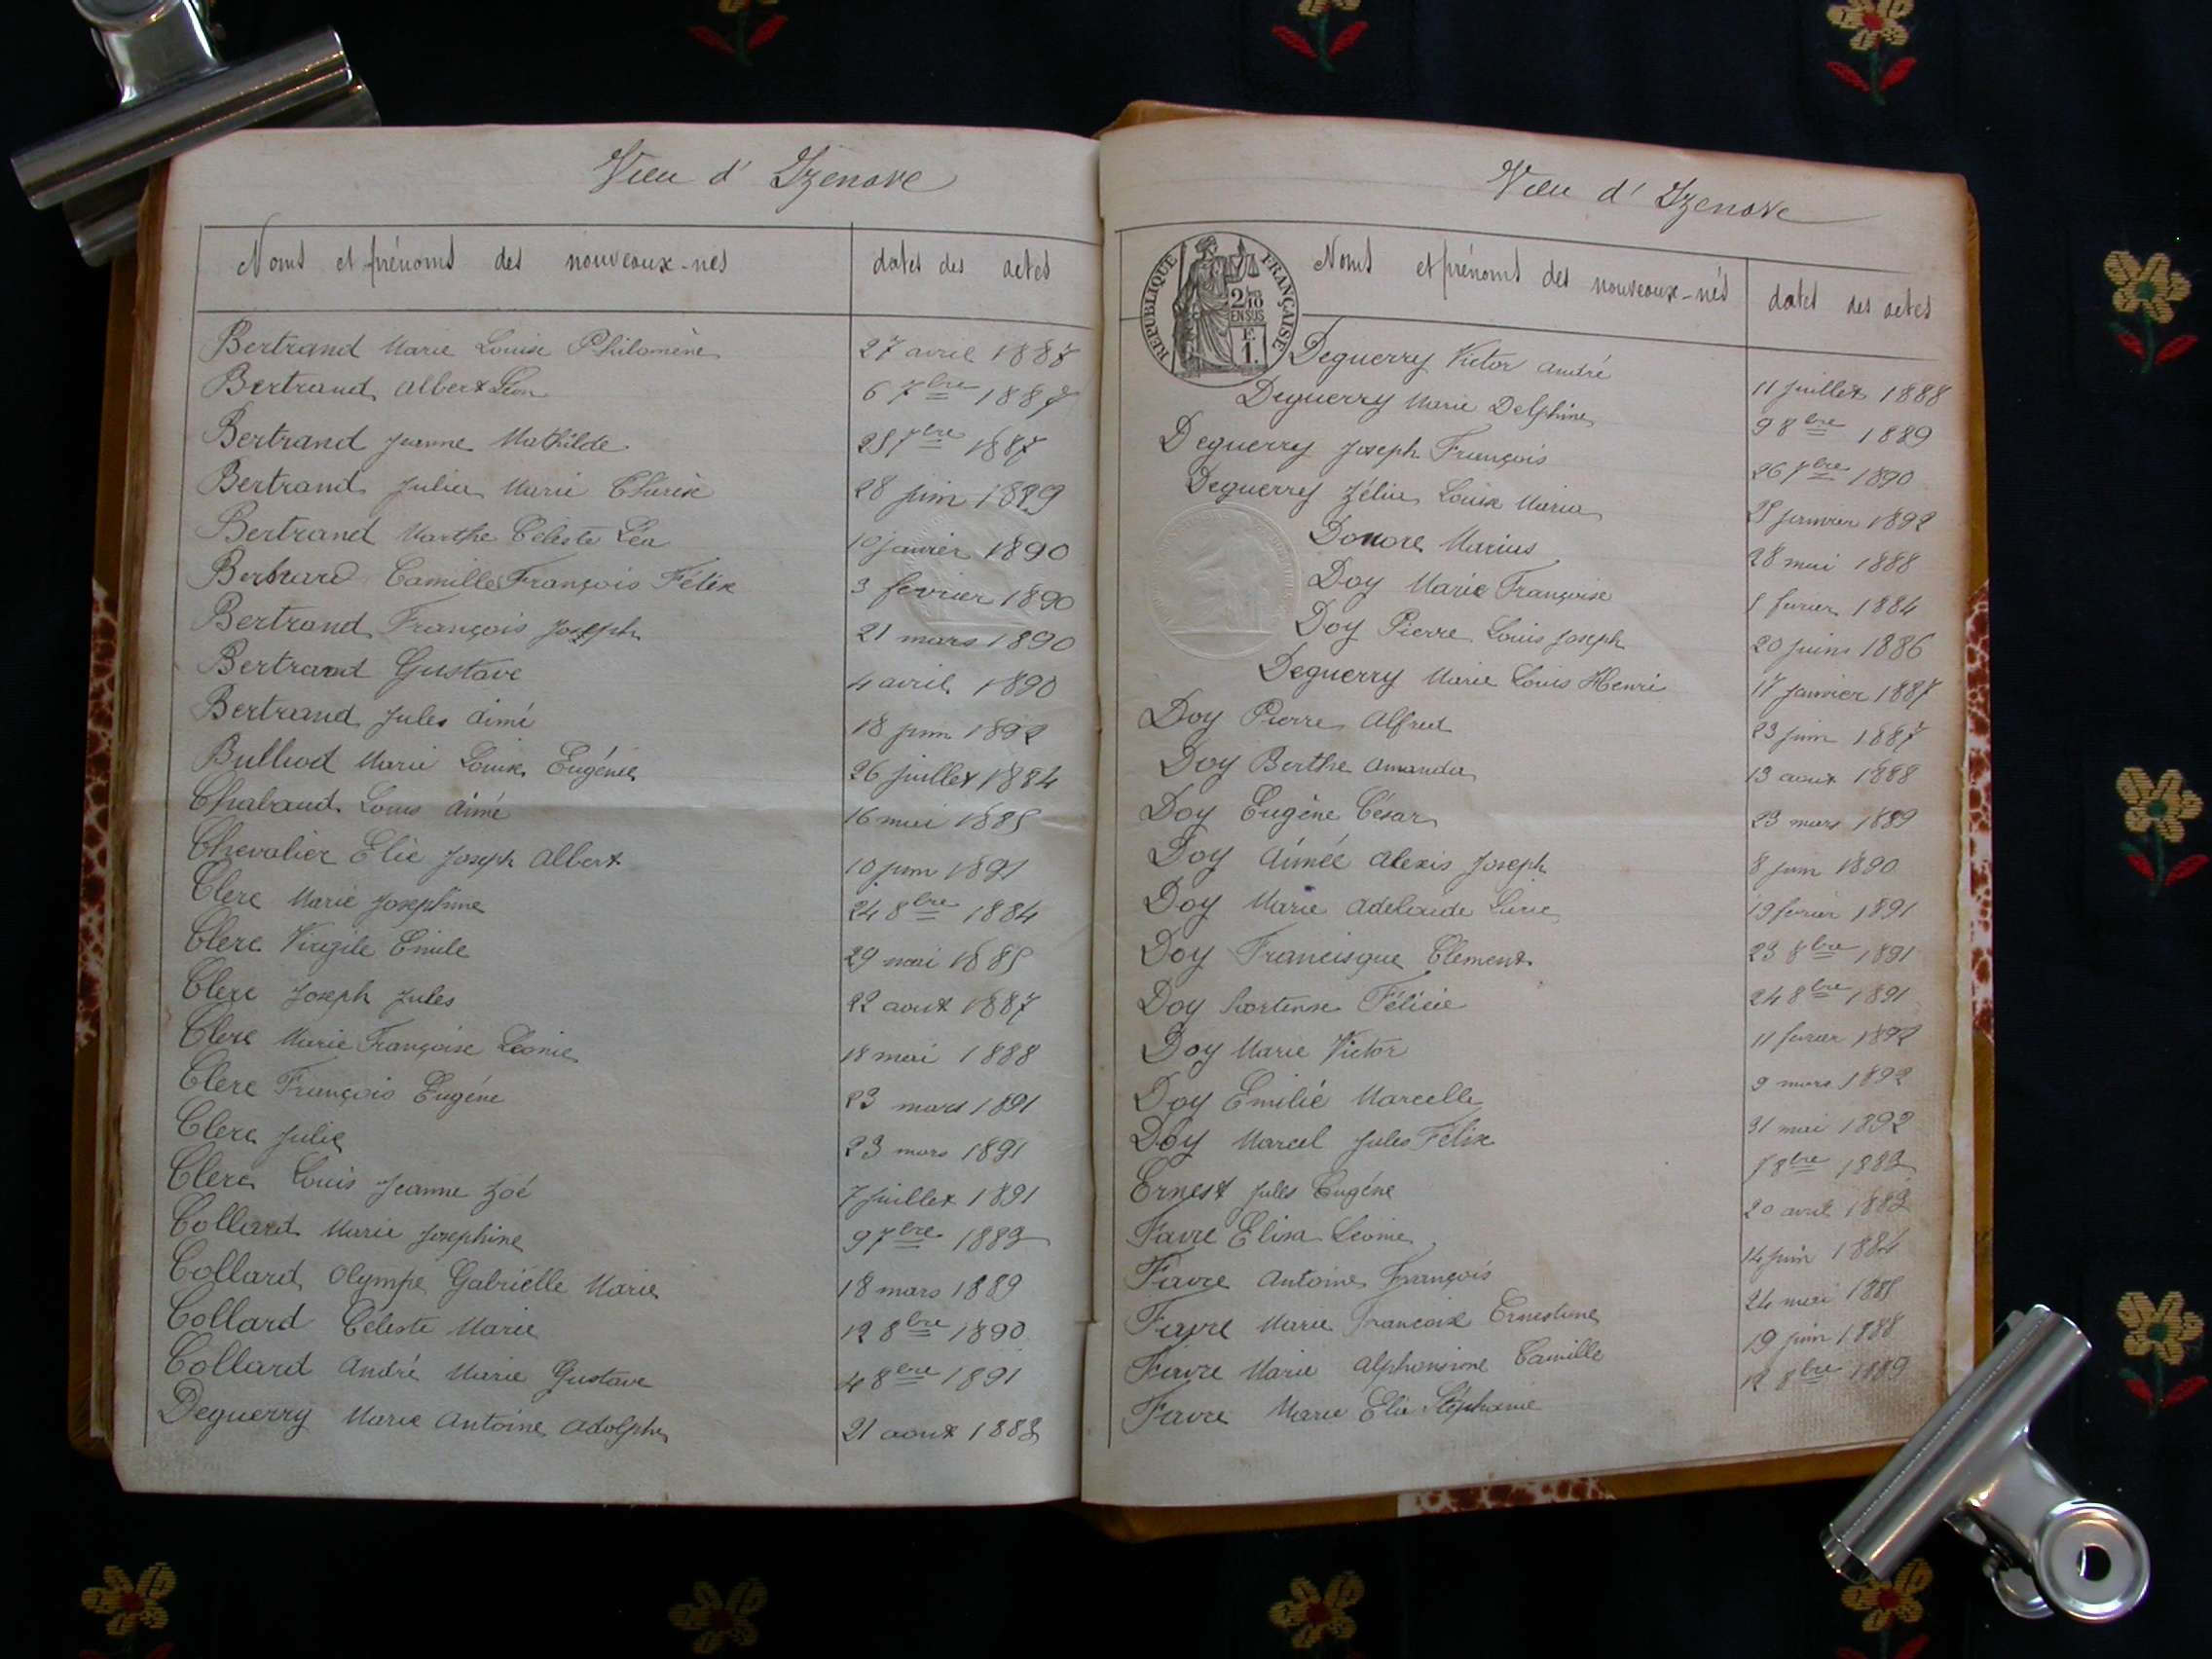 Vieu d' Izenave
Noms et prénoms des nouveaux-nés dates des actes
Bertrand Marie Louise Philomène 27 avril 1887
Bertrand Albert Léon 6 7bre 1887
Bertrand Jeanne Mathilde 25 7bre 1887
Bertrand Julia Marie Thérèse 28 juin 1889
Bertrand Marthe Céleste Léa 10 janvier 1890
Bertrand Camille François Félix 3 fevrier 1890
Bertrand François Joseph 21 mars 1890
Bertrand Gustave 4 avril 1890
Bertrand Jules Aimé 18 juin 1892
Bulliod Marie Louise Eugénie 26 juillet 1884
Chabaud Louis Aimé 16 mai 1885
Chevalier Elie Joseph Albert 10 juin 1891
Clerc Marie Joséphine 24 8bre 1884
Clerc Virgile Emile 29 mai 1885
Clerc Joseph Jules 22 aout 1887
Clerc Marie Françoise Léonie 18 mai 1888
Clerc François Eugéne 23 mars 1891
Clerc Julie 23 mars 1891
Clerc Louis Jeanne Zoé 7 juillet 1891
Collard Marie Joséphine 9 7bre 1883
Collard Olympe Gabrielle Marie 18 mars 1889
Collard Céleste Marie 12 8bre 1890
Collard André Marie Gustave 4 8bre 1891
Deguerry Marie Antoine Adolphe 21 aout 1883
Vieu d' Izenave
REPUBLIQUE FRANÇAISE
2/10
EN SUS
F.
1.
Noms et prénoms des nouveaux-nés dates des actes
Deguerry Victor André 11 juillet 1888
Deguerry Marie Delphine 9 8bre 1889
Deguerry Joseph François 26 7bre 1890
Deguerry Zélia Louise Maria 25 janvier 1892
Donore Marius 28 mai 1888
Doy Marie Françoise fevrier 1884
Doy Pierre Louis Joseph 20 juin 1886
Deguerry Marie Louis Henri 17 janvier 1887
Doy Pierre Alfred 23 juin 1887
Doy Berthe Amanda 13 aout 1888
Doy Eugène César 23 mars 1889
Doy Aimée Alexis Joseph 8 juin 1890
Doy Marie Adelaide 19 fevrier 1891
Doy Francisque Clement 23 8bre 1891
Doy hortense Félicie 24 8bre 1891
Doy Marie Victor 11 fevrier 1892
Doy Emilie Marcelle 9 mars 1892
Doy Marcel Jules Félix 31 mai 1892
Ernest Jules Eugéne 8bre 1883
Favre Elisa Léonie 20 avril 1883
Favre Antoine François 14 juin 1884
Favre Marie Francoise Ernestine 24 mai 1885
Favre Marie Alphonsine Camille 19 juin 1888
Favre Marie Elie Stéphanie 12 8bre 1889